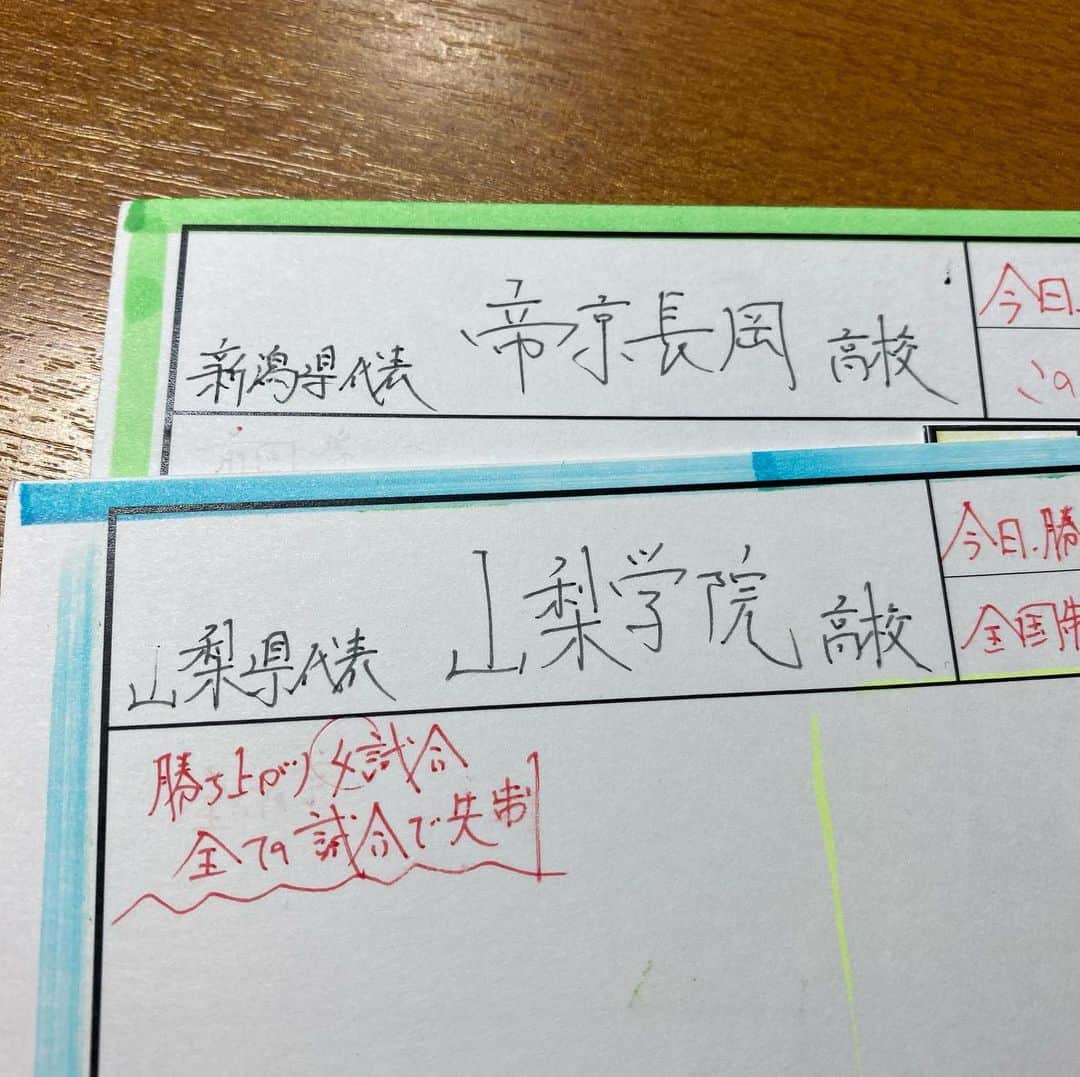 新潟県代表 帝京長岡 高校
今日.
この
山梨県代表 山梨学院 高校
今日.勝
全国制
勝ち上がり 4試合
全ての試合で先制